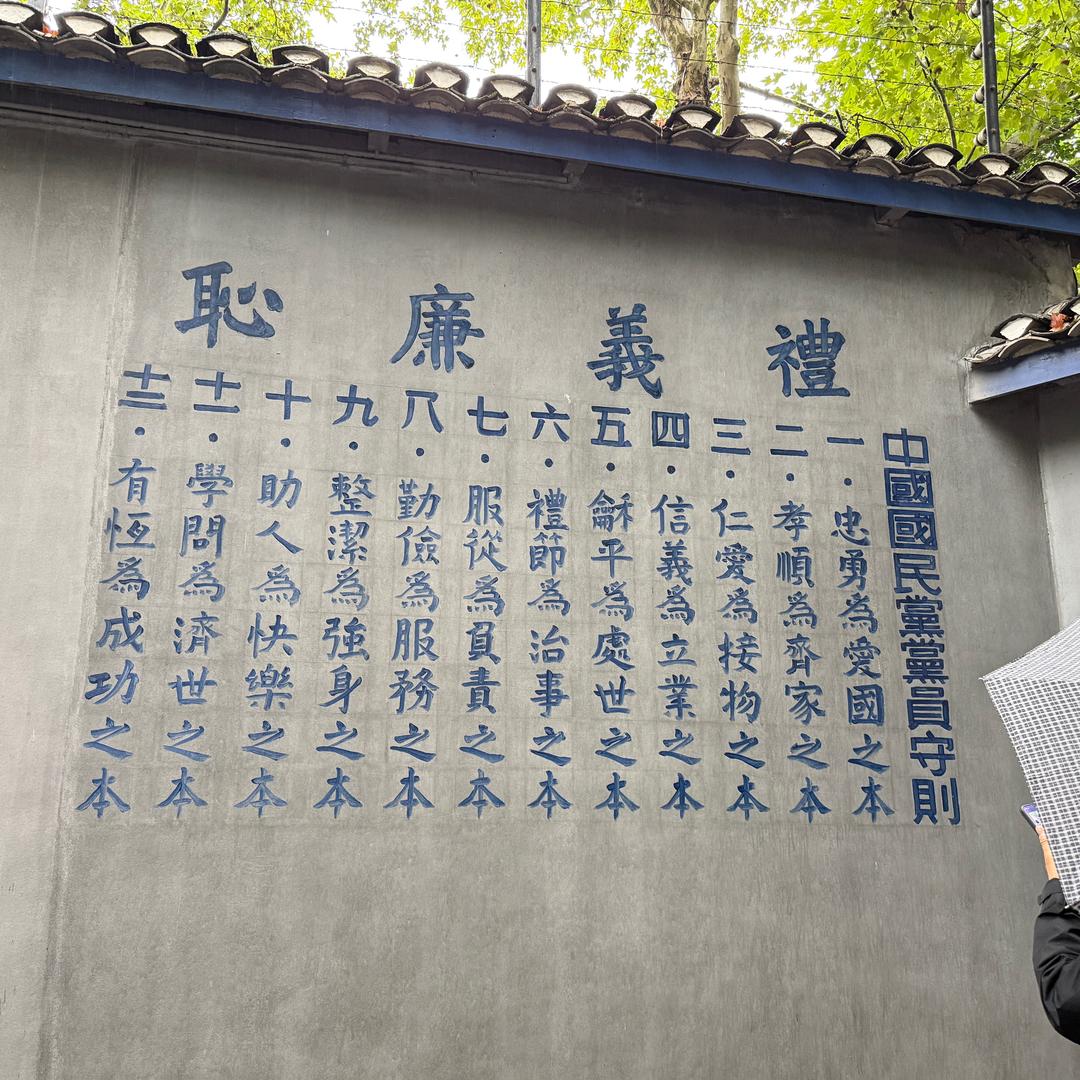 禮義廉恥
中國國民黨黨員守則
一・忠勇為愛國之本
二・孝順為齊家之本
三・仁愛為接物之本
四・信義為立業之本
五・龢平為處世之本
六・禮節為治事之本
七・服從為負責之本
八・勤儉為服務之本
九・整潔為強身之本
十・助人為快樂之本
十一・學問為濟世之本
十二・有恆為成功之本